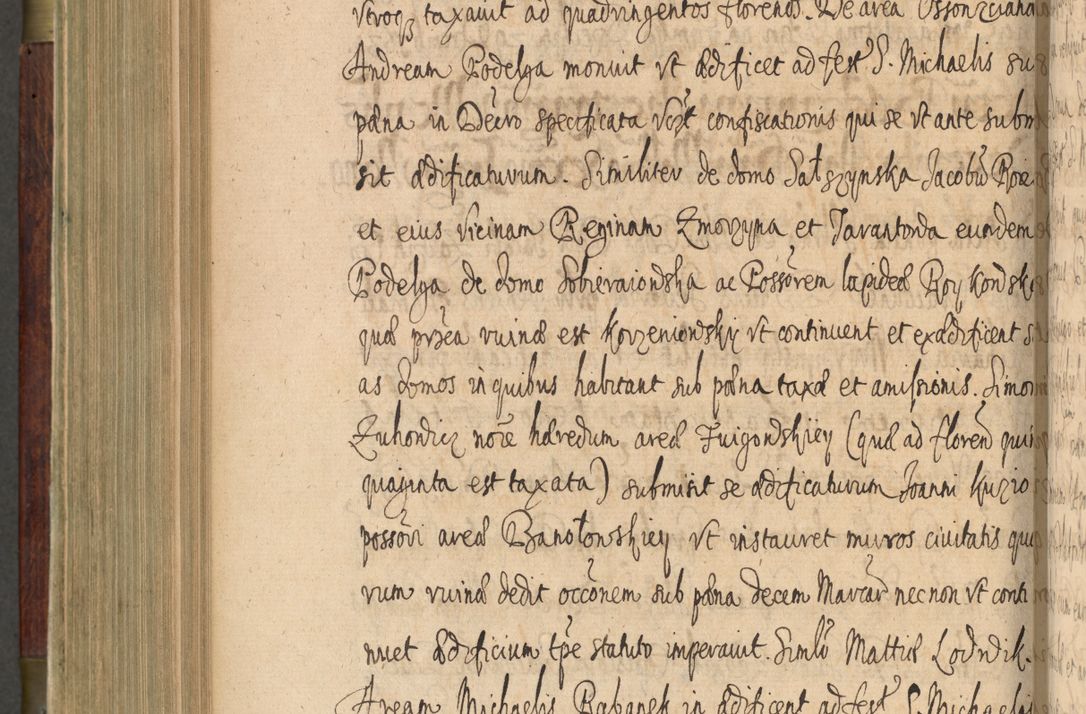 taxavit ad quadringentos florenos. De area
Andream Podelga monuit vt ædificet ad fest S. Michaelis su
pæna in Decro specificata confiscationis qui se vt ante subm
sit ædificaturum. Similiter de domo Sałszynska Jacobū
et eius vicinam Reginam Zmorzyna et Tarantorda eundem
Podelga de domo Sobieraiowska ac Possorem lapideæ Roykowsk
quæ præa ruinæ est Korzeniowskiy vt continuent et exædificent s
as domos in quibus habitant sub pæna taxæ et amissionis. Simon
Zuhowicz noīe hæredum areæ Fuigowskiey (quæ ad floren quin
quaginta est taxata) submisit se ædificaturum Joanni
possori areæ Banołowskiey vt instauret muros civitatis quo
rum ruinæ dedit occōnem sub pæna decem Marcar nec non vt conti
nuet ædificium tpe statuto imperavit. Simlr Mattiæ
Aream Michaelis Babanek in ædificent ad fest S Michaelis